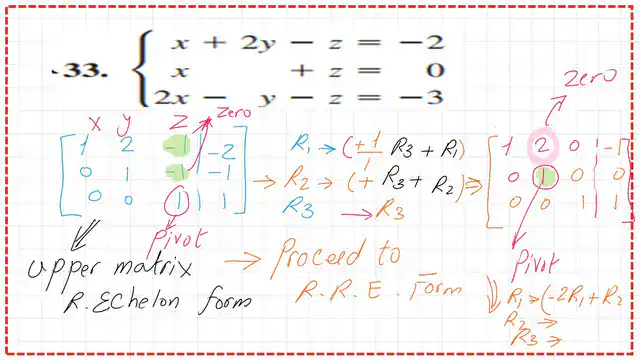 33. { x + 2y − z = −2
x + z = 0
2x − y − z = −3
Zero
x y z Zero
[ 1 2 -1 | -2 ]
[ 0 1 -1 | -1 ]
[ 0 0 1 | 1 ]
Pivot
R1 → (+1/1 R3 + R1)
→ R2 → (+ R3 + R2) ⇒
R3 → R3
[ 1 2 0 | -1 ]
[ 0 1 0 | 0 ]
[ 0 0 1 | 1 ]
Pivot
upper matrix
R. Echelon form
→ Proceed to
R.R.E. Form
R1 → (-2R1 + R2
R2 →
R3 →